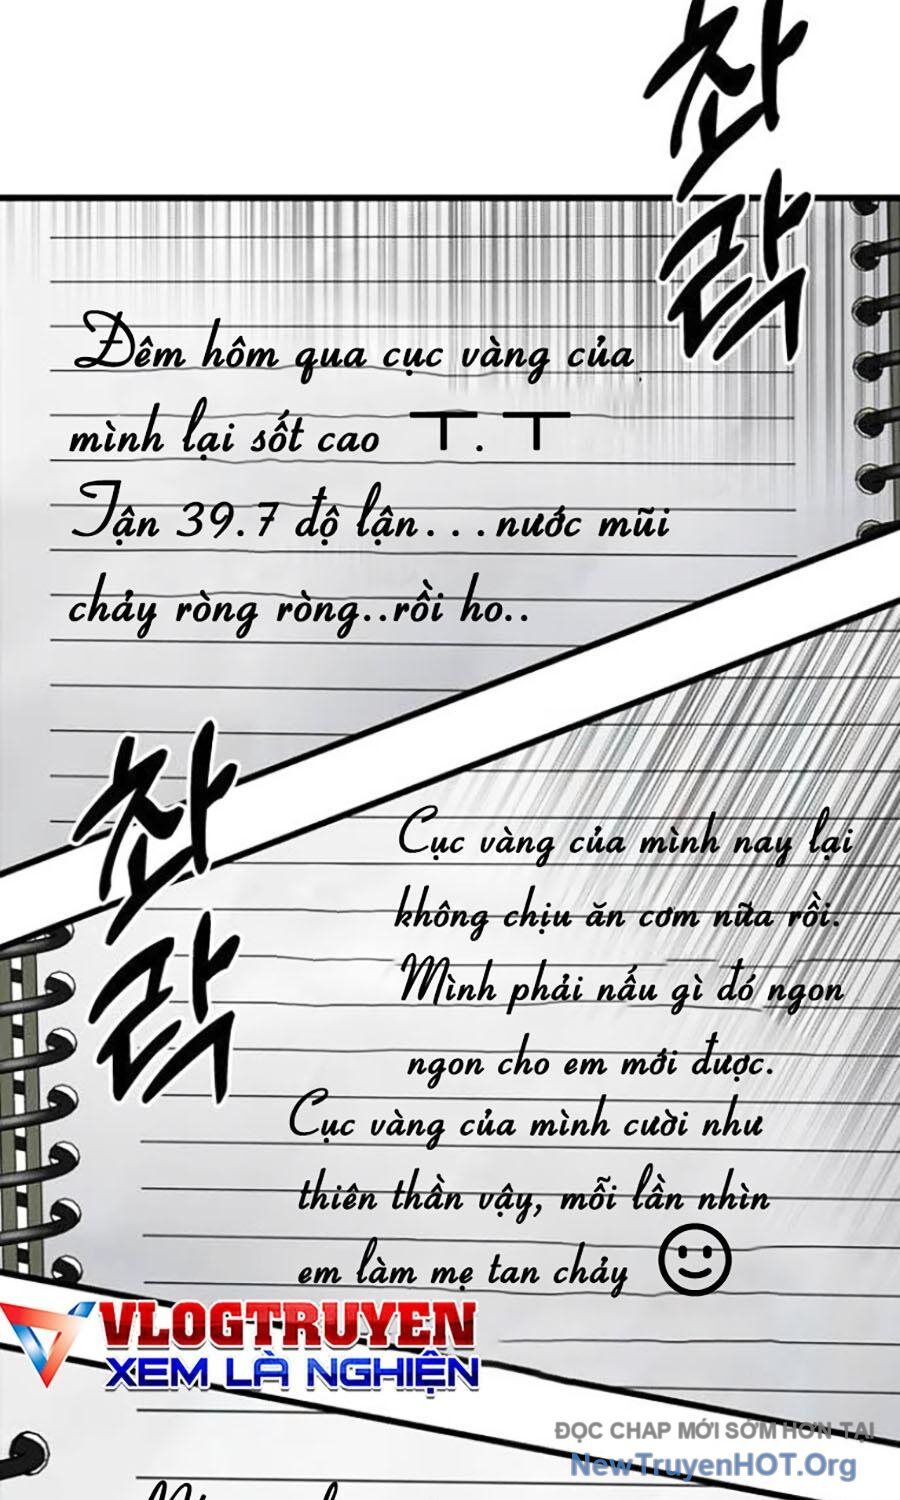 촤
락
Đêm hôm qua cục vàng của
mình lại sốt cao T.T
Tận 39.7 độ lận...nước mũi
chảy ròng ròng..rồi ho..
촤
락
Cục vàng của mình nay lại
không chịu ăn cơm nữa rồi.
Mình phải nấu gì đó ngon
ngon cho em mới được.
Cục vàng của mình cười như
thiên thần vậy, mỗi lần nhìn
em làm mẹ tan chảy
VLOGTRUYEN
XEM LÀ NGHIỆN
ĐỌC CHAP MỚI SỚM HƠN TẠI
NewTruyenHOT.Org